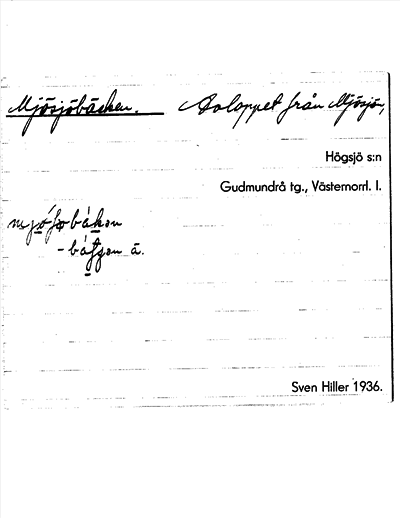 Mjösjöbäcken. Avloppet från Mjösjö,
Högsjö s:n
Gudmundrå tg., Västernorrl. l.
-bá
ä.
Sven Hiller 1936.